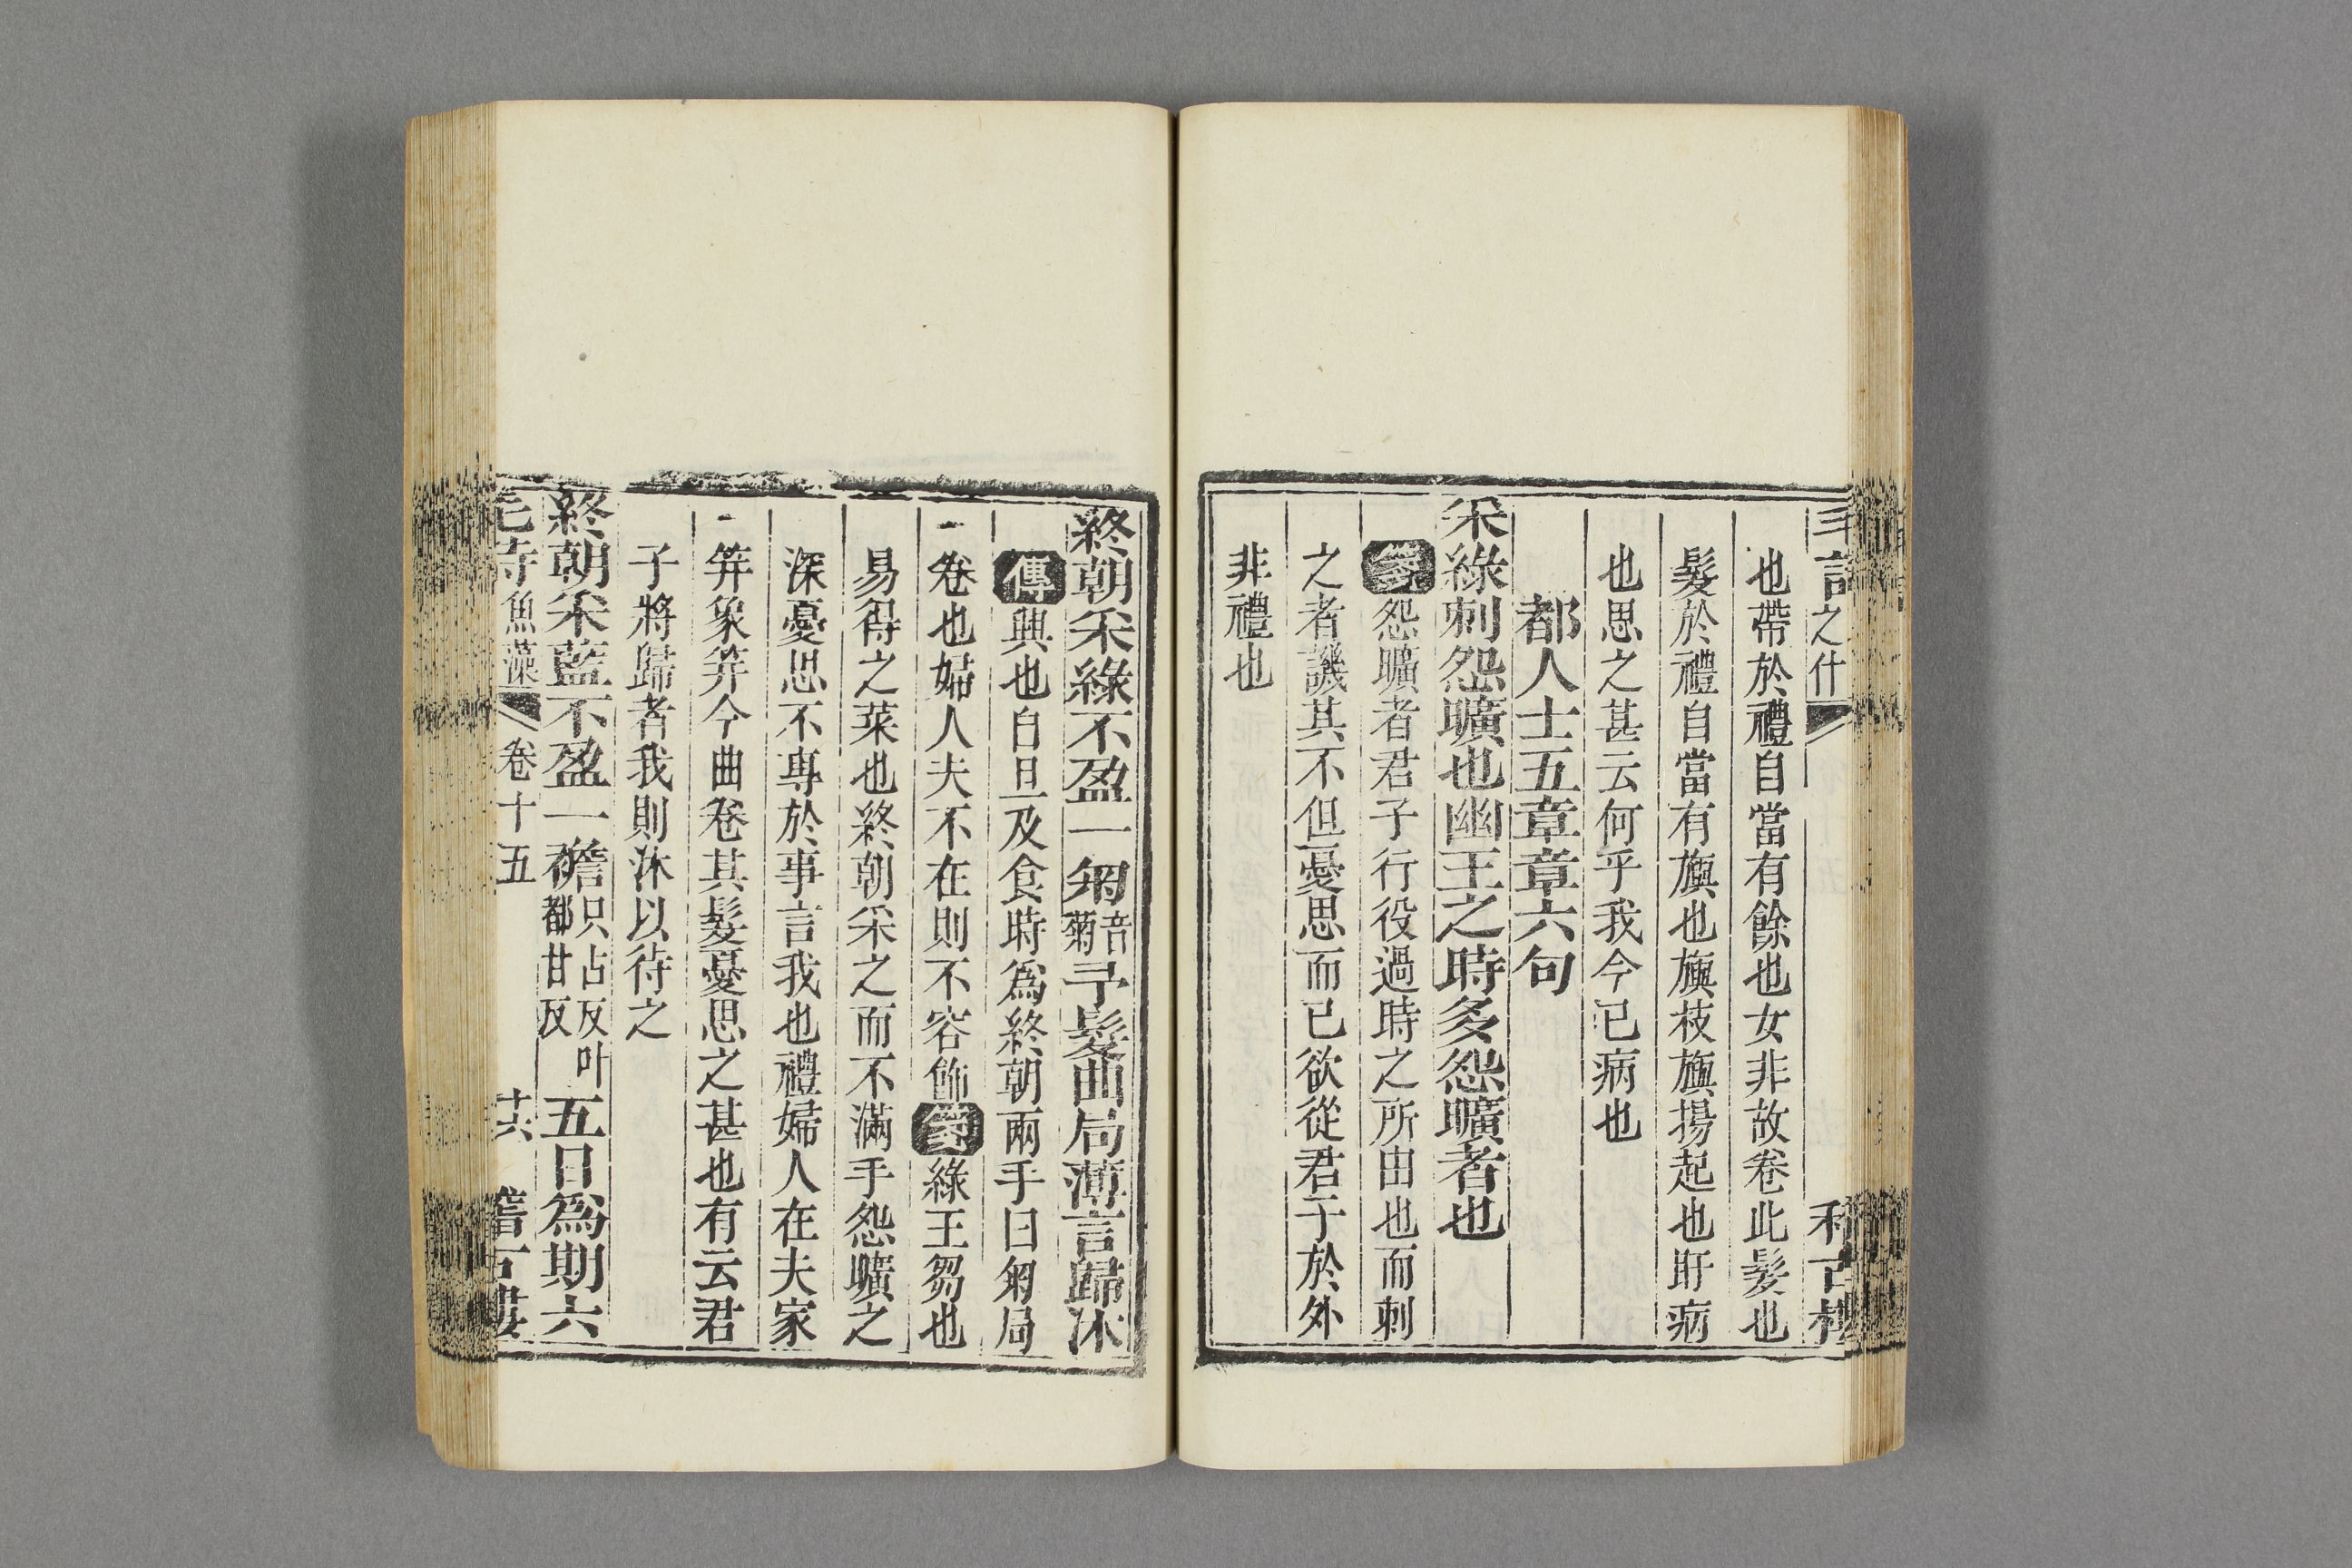 之什
也帶於禮自當有餘也女非故卷此髮也
髮於禮自當有旟也旟枝旟揚起也盱病
也思之甚云何乎我今已病也
都人士五章章六句
采綠刺怨曠也幽王之時多怨曠者也
箋怨曠者君子行役過時之所由也而刺
之者譏其不但憂思而已欲從君子於外
非禮也
終朝采綠不盈一匊音菊予髮曲局薄言歸沐
傳興也自旦及食時爲終朝兩手曰匊局
卷也婦人夫不在則不容飾箋綠王芻也
易得之菜也終朝采之而不滿手怨曠之
深憂思不專於事言我也禮婦人在夫家
笄象笄今曲卷其髮憂思之甚也有云君
子將歸者我則沐以待之
終朝采藍不盈一襜只占反叶都甘反五日爲期六
魚藻 卷十五 十六